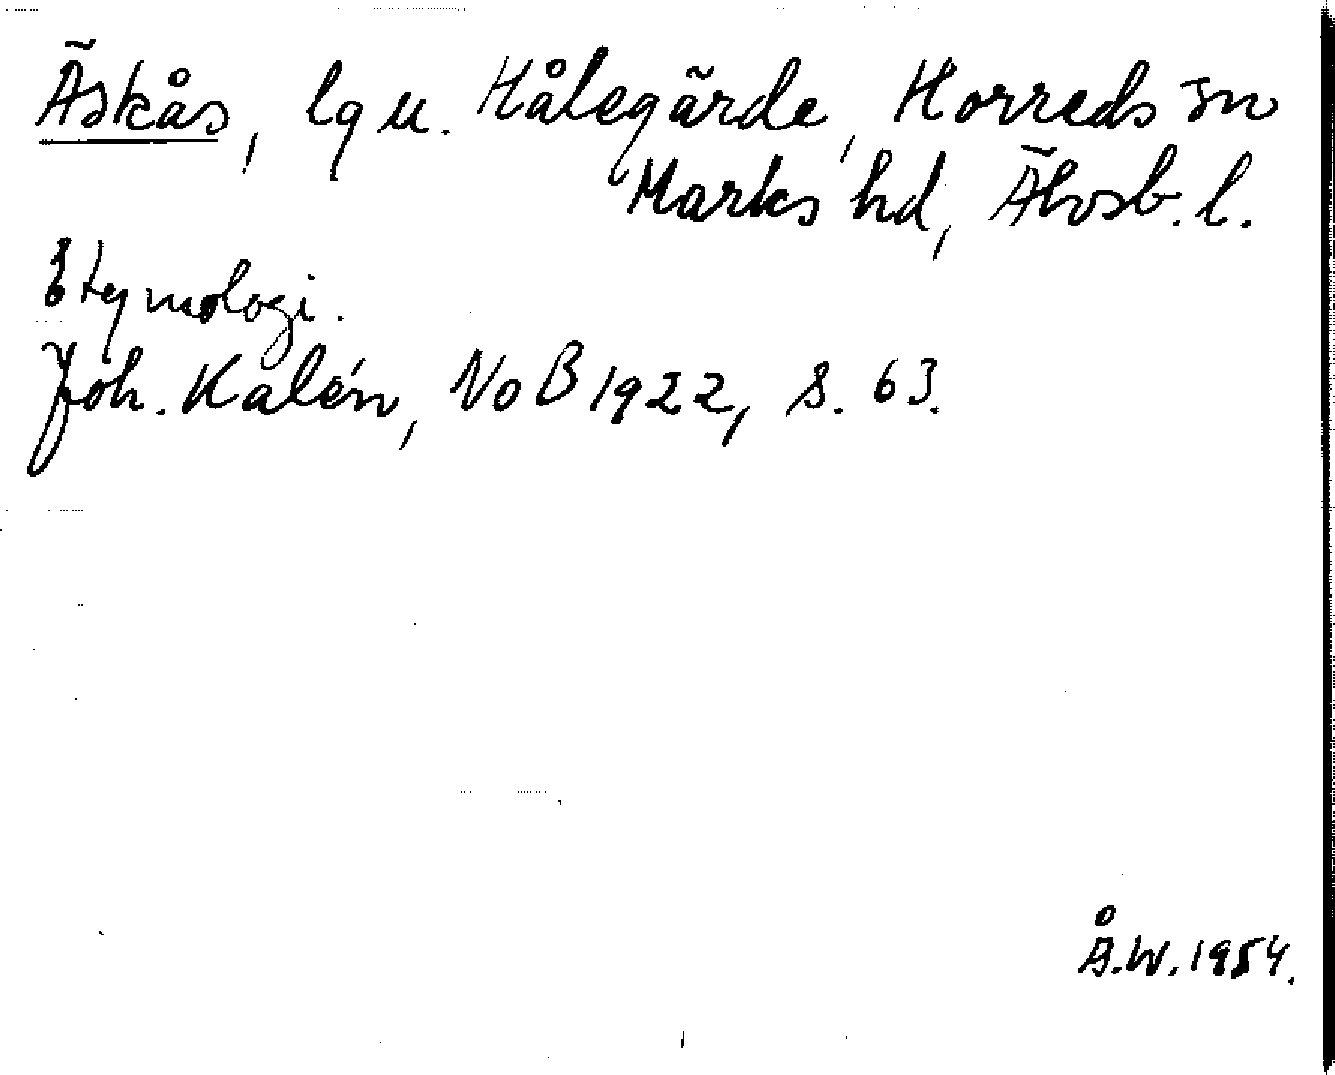 Äskås, lg u. Hålegärde, Horreds sn
Marks hd, Älvsb. l.
Etymologi.
Joh. Kalén, NoB 1922, s. 63.
Å.W. 1954.